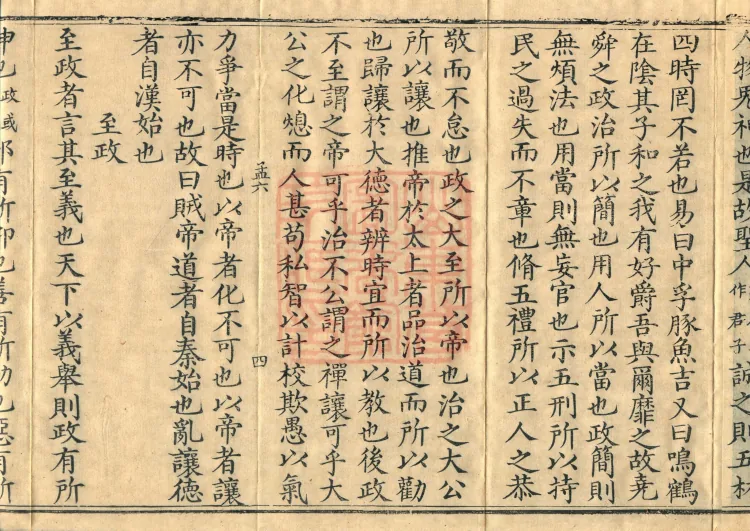 人物界神也是故聖人作君子誠之則五材
四時罔不若也易曰中孚豚魚吉又曰鳴鶴
在陰其子和之我有好爵吾與爾靡之故堯
舜之政治所以簡也用人所以當也政簡則
無煩法也用當則無妄官也示五刑所以持
民之過失而不章也脩五禮所以正人之恭
敬而不怠也政之大至所以帝也治之大公
所以讓也推帝於太上者品治道而所以勸
也歸讓於大德者辨時宜而所以教也後政
不至謂之帝可乎治不公謂之禪讓可乎大
公之化熄而人甚苟私智以計校欺愚以氣
孟六
四
力爭當是時也以帝者化不可也以帝者讓
亦不可也故曰賊帝道者自秦始也亂讓德
者自漢始也
至政
至政者言其至義也天下以義舉則政有所
申也政或
有所
也善有所勸也惡有所